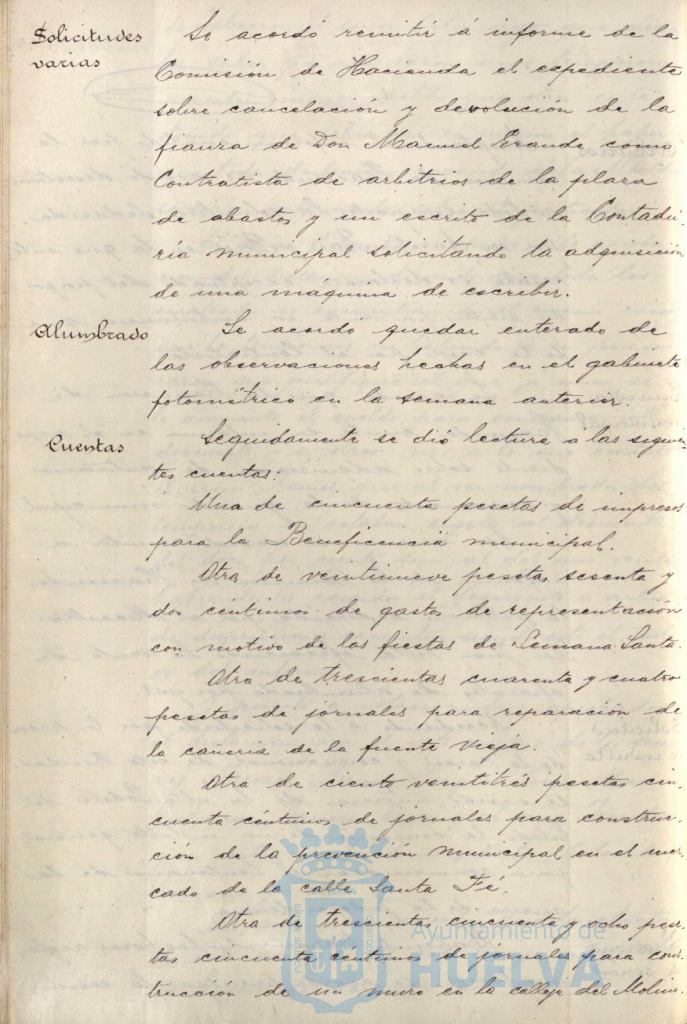 Solicitudes
varias
Se acordó remitir á informe de la
Comisión de Hacienda el expediente
sobre cancelación y devolución de la
fianza de Don Manuel Grande como
Contratista de arbitrios de la plaza
de abastos y un escrito de la Contadu-
ría municipal solicitando la adquisición
de una máquina de escribir.
Alumbrado
Se acordó quedar enterado de
las observaciones hechas en el gabinete
fotométrico en la semana anterior.
Cuentas
Seguidamente se dió lectura á las siguien-
tes cuentas:
Una de cincuenta pesetas de impresos
para la Beneficencia municipal.
Otra de veintinueve pesetas sesenta y
dos céntimos de gastos de representación
con motivo de las fiestas de Semana Santa.
Otra de trescientas cuarenta y cuatro
pesetas de jornales para reparación de
la cañería de la fuente vieja.
Otra de ciento veintitrés pesetas cin-
cuenta céntimos de jornales para construc-
ción de la prevención municipal en el mer-
cado de la calle Santa Fé.
Otra de trescientas cincuenta y ocho pese-
tas cincuenta céntimos de jornales para cons-
trucción de un muro en la calleja del Molino.
Ayuntamiento de
HUELVA